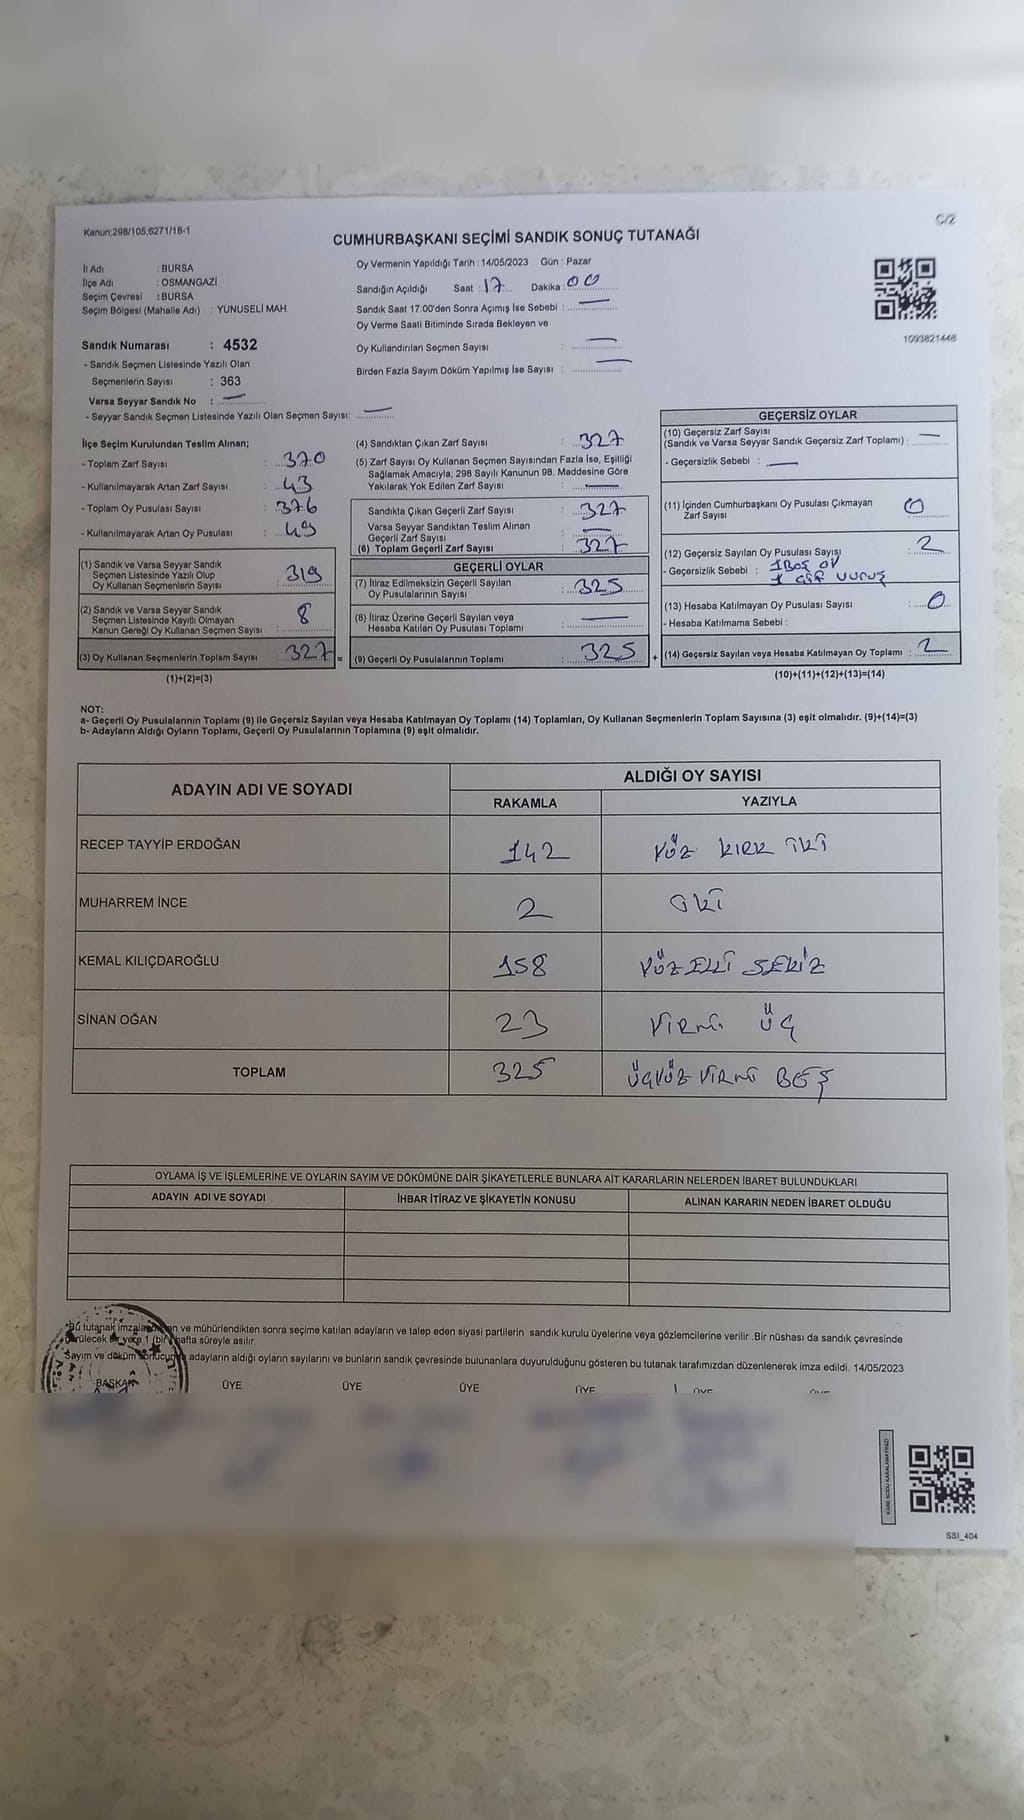 Kanun;298/105;6271/18-1
C/2
CUMHURBAŞKANI SEÇİMİ SANDIK SONUÇ TUTANAĞI
İl Adı : BURSA
İlçe Adı : OSMANGAZİ
Seçim Çevresi : BURSA
Seçim Bölgesi (Mahalle Adı) : YUNUSELİ MAH.
Oy Vermenin Yapıldığı Tarih : 14/05/2023 Gün : Pazar
Sandığın Açıldığı Saat : 17 Dakika : 00
Sandık Saat 17:00'den Sonra Açımış İse Sebebi : —
Oy Verme Saati Bitiminde Sırada Bekleyen ve
Oy Kullandırılan Seçmen Sayısı : —
Birden Fazla Sayım Döküm Yapılmış İse Sayısı : —
1093821448
Sandık Numarası : 4532
- Sandık Seçmen Listesinde Yazılı Olan
Seçmenlerin Sayısı : 363
Varsa Seyyar Sandık No : —
- Seyyar Sandık Seçmen Listesinde Yazılı Olan Seçmen Sayısı: —
İlçe Seçim Kurulundan Teslim Alınan;
- Toplam Zarf Sayısı : 370
- Kullanılmayarak Artan Zarf Sayısı : 43
- Toplam Oy Pusulası Sayısı : 376
- Kullanılmayarak Artan Oy Pusulası : 49
(1) Sandık ve Varsa Seyyar Sandık
Seçmen Listesinde Yazılı Olup
Oy Kullanan Seçmenlerin Sayısı : 319
(2) Sandık ve Varsa Seyyar Sandık
Seçmen Listesinde Kayıtlı Olmayan
Kanun Gereği Oy Kullanan Seçmen Sayısı : 8
(3) Oy Kullanan Seçmenlerin Toplam Sayısı : 327 =
(1)+(2)=(3)
(4) Sandıktan Çıkan Zarf Sayısı : 327
(5) Zarf Sayısı Oy Kullanan Seçmen Sayısından Fazla İse, Eşitliği
Sağlamak Amacıyla, 298 Sayılı Kanunun 98. Maddesine Göre
Yakılarak Yok Edilen Zarf Sayısı : —
Sandıkta Çıkan Geçerli Zarf Sayısı : 327
Varsa Seyyar Sandıktan Teslim Alınan
Geçerli Zarf Sayısı : —
(6) Toplam Geçerli Zarf Sayısı : 327
GEÇERLİ OYLAR
(7) İtiraz Edilmeksizin Geçerli Sayılan
Oy Pusulalarının Sayısı : 325
(8) İtiraz Üzerine Geçerli Sayılan veya
Hesaba Katılan Oy Pusulası Toplamı : —
(9) Geçerli Oy Pusulalarının Toplamı : 325 +
GEÇERSİZ OYLAR
(10) Geçersiz Zarf Sayısı
(Sandık ve Varsa Seyyar Sandık Geçersiz Zarf Toplamı) : —
- Geçersizlik Sebebi : —
(11) İçinden Cumhurbaşkanı Oy Pusulası Çıkmayan
Zarf Sayısı : 0
(12) Geçersiz Sayılan Oy Pusulası Sayısı : 2
- Geçersizlik Sebebi : 1 BOŞ OY
1 çift vuruş
(13) Hesaba Katılmayan Oy Pusulası Sayısı : 0
- Hesaba Katılmama Sebebi :
(14) Geçersiz Sayılan veya Hesaba Katılmayan Oy Toplamı : 2
(10)+(11)+(12)+(13)=(14)
NOT:
a- Geçerli Oy Pusulalarının Toplamı (9) ile Geçersiz Sayılan veya Hesaba Katılmayan Oy Toplamı (14) Toplamları, Oy Kullanan Seçmenlerin Toplam Sayısına (3) eşit olmalıdır. (9)+(14)=(3)
b- Adayların Aldığı Oyların Toplamı, Geçerli Oy Pusulalarının Toplamına (9) eşit olmalıdır.
ADAYIN ADI VE SOYADI
ALDIĞI OY SAYISI
RAKAMLA YAZIYLA
RECEP TAYYİP ERDOĞAN 142 YÜZ KIRK İKİ
MUHARREM İNCE 2 İKİ
KEMAL KILIÇDAROĞLU 158 YÜZ ELLİ SEKİZ
SİNAN OĞAN 23 YİRMİ ÜÇ
TOPLAM 325 ÜÇYÜZ YİRMİ BEŞ
OYLAMA İŞ VE İŞLEMLERİNE VE OYLARIN SAYIM VE DÖKÜMÜNE DAİR ŞİKAYETLERLE BUNLARA AİT KARARLARIN NELERDEN İBARET BULUNDUKLARI
ADAYIN ADI VE SOYADI İHBAR İTİRAZ VE ŞİKAYETİN KONUSU ALINAN KARARIN NEDEN İBARET OLDUĞU
Bu tutanak ve mühürlendikten sonra seçime katılan adayların ve talep eden siyasi partilerin sandık kurulu üyelerine veya gözlemcilerine verilir .Bir nüshası da sandık çevresinde
yere 1 (bir) hafta süreyle asılır.
Sayım ve döküm sonucunda adayların aldığı oyların sayılarını ve bunların sandık çevresinde bulunanlara duyurulduğunu gösteren bu tutanak tarafımızdan düzenlenerek imza edildi. 14/05/2023
BAŞKAN ÜYE ÜYE ÜYE ÜYE ÜYE ÜYE
KARE KODU KARALAMAYINIZ!
SSI_404